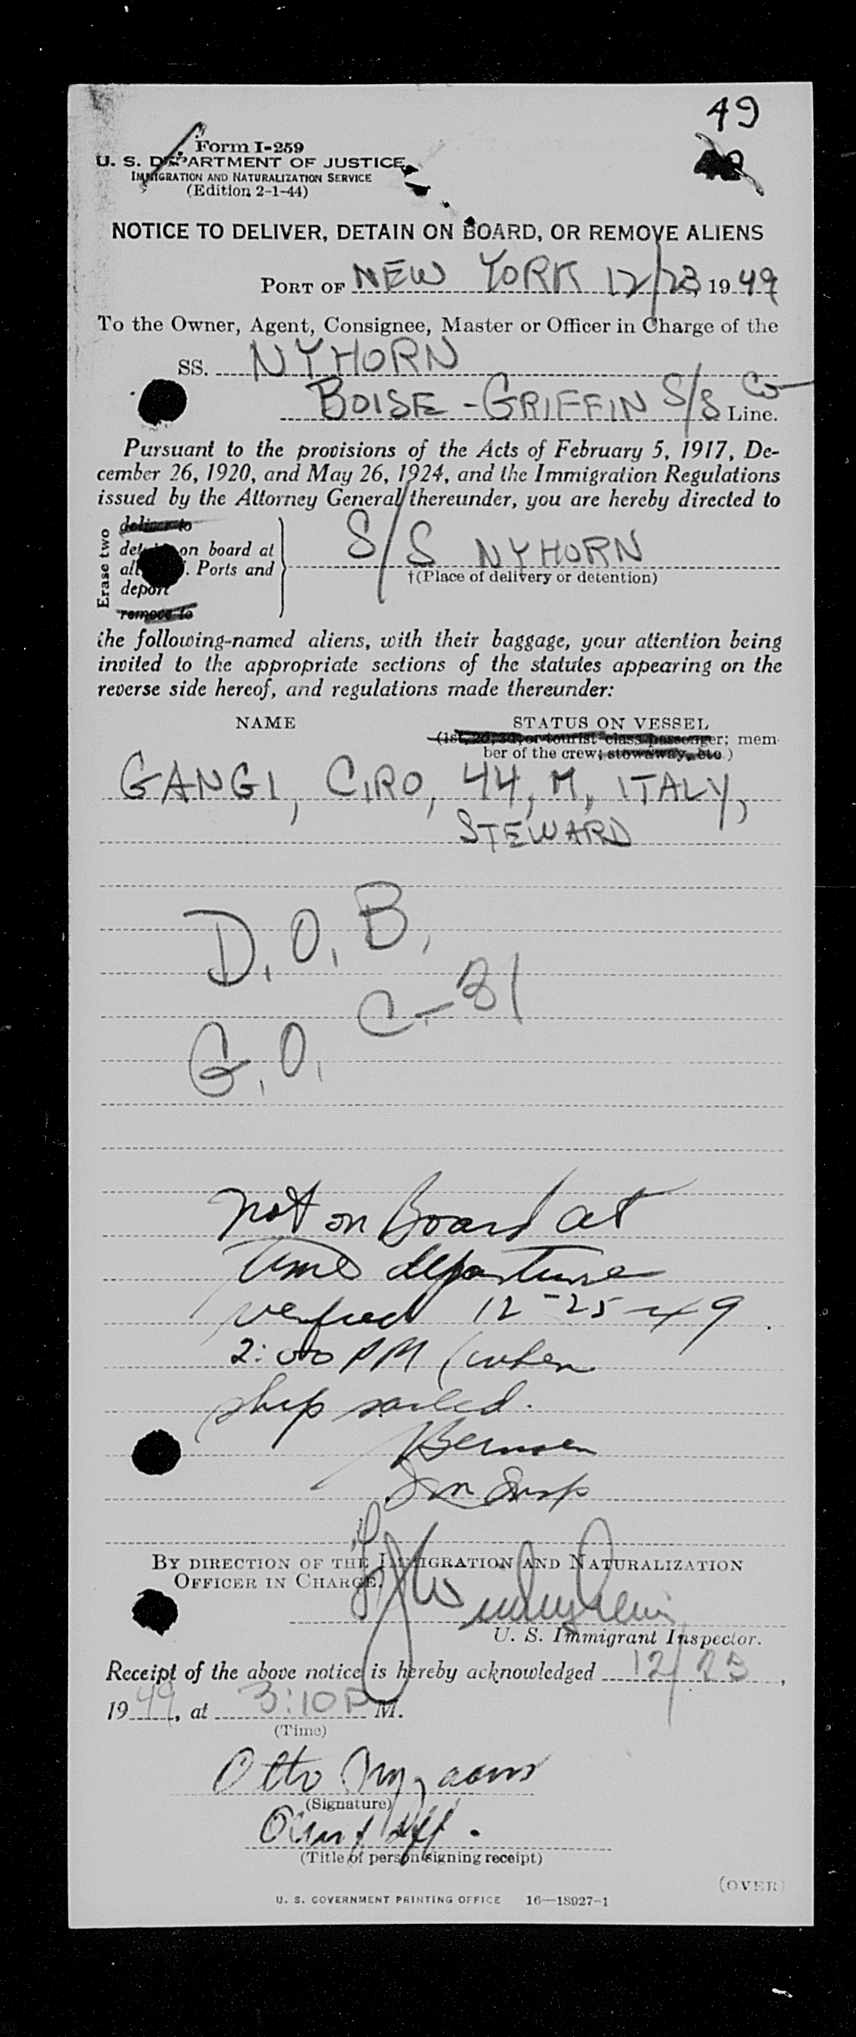 49
Form I-259
U. S. DEPARTMENT OF JUSTICE
IMMIGRATION AND NATURALIZATION SERVICE
(Edition 2-1-44)
NOTICE TO DELIVER, DETAIN ON BOARD, OR REMOVE ALIENS
PORT OF NEW YORK 12/23, 1949
To the Owner, Agent, Consignee, Master or Officer in Charge of the
SS. NYHORN
BOISE-GRIFFIN S/S Co Line.
Pursuant to the provisions of the Acts of February 5, 1917, De-
cember 26, 1920, and May 26, 1924, and the Immigration Regulations
issued by the Attorney General thereunder, you are hereby directed to
Erase two
deliver to
detain on board at
all U.S. Ports and
deport
remove to
S/S NYHORN
†(Place of delivery or detention)
the following-named aliens, with their baggage, your attention being
invited to the appropriate sections of the statutes appearing on the
reverse side hereof, and regulations made thereunder:
NAME STATUS ON VESSEL
(1st, 2d, 3d, or tourist class passenger; mem-
ber of the crew; stowaway, etc.)
GANGI, CIRO, 44, M, ITALY,
STEWARD
D.O.B.
G.O. C-31
Not on Board at
time departure
verified 12-25-49.
2:00 PM (when
ship sailed.
Imm Insp
BY DIRECTION OF THE IMMIGRATION AND NATURALIZATION
OFFICER IN CHARGE.
U. S. Immigrant Inspector.
Receipt of the above notice is hereby acknowledged 12/23,
1949, at 3:10 P M.
(Time)
Otto
(Signature)
(Title of person signing receipt)
(OVER)
U. S. GOVERNMENT PRINTING OFFICE 16—18027-1